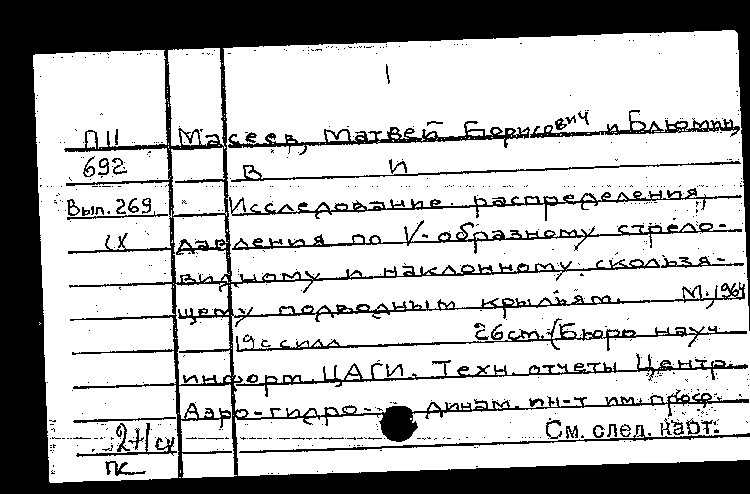 1
П11 Масеев, Матвей Борисович и Блюмин,
692 В И
Вып. 269 Исследование распределения
сх давления по V-образному стрело-
видному и наклонному скользя-
щему подводным крыльям. М., 1964
19с с илл 26 см. (Бюро науч
информ. ЦАГИ. Техн. отчеты Центр.
Аэро-гидро- динам. ин-т им. проф.
2+1 сх См. след. карт.
ПК